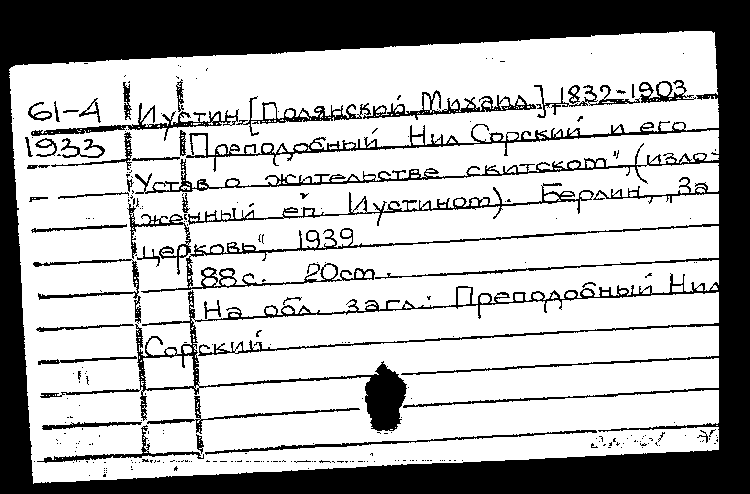 61-4 Иустин [Полянский, Михаил], 1832-1903
1933 Преподобный Нил Сорский и его
"Устав о жительстве скитском", (изло=
женный еп. Иустином). Берлин, „За
церковь", 1939.
88 с. 20 cm.
На обл. загл.: Преподобный Нил
Сорский.